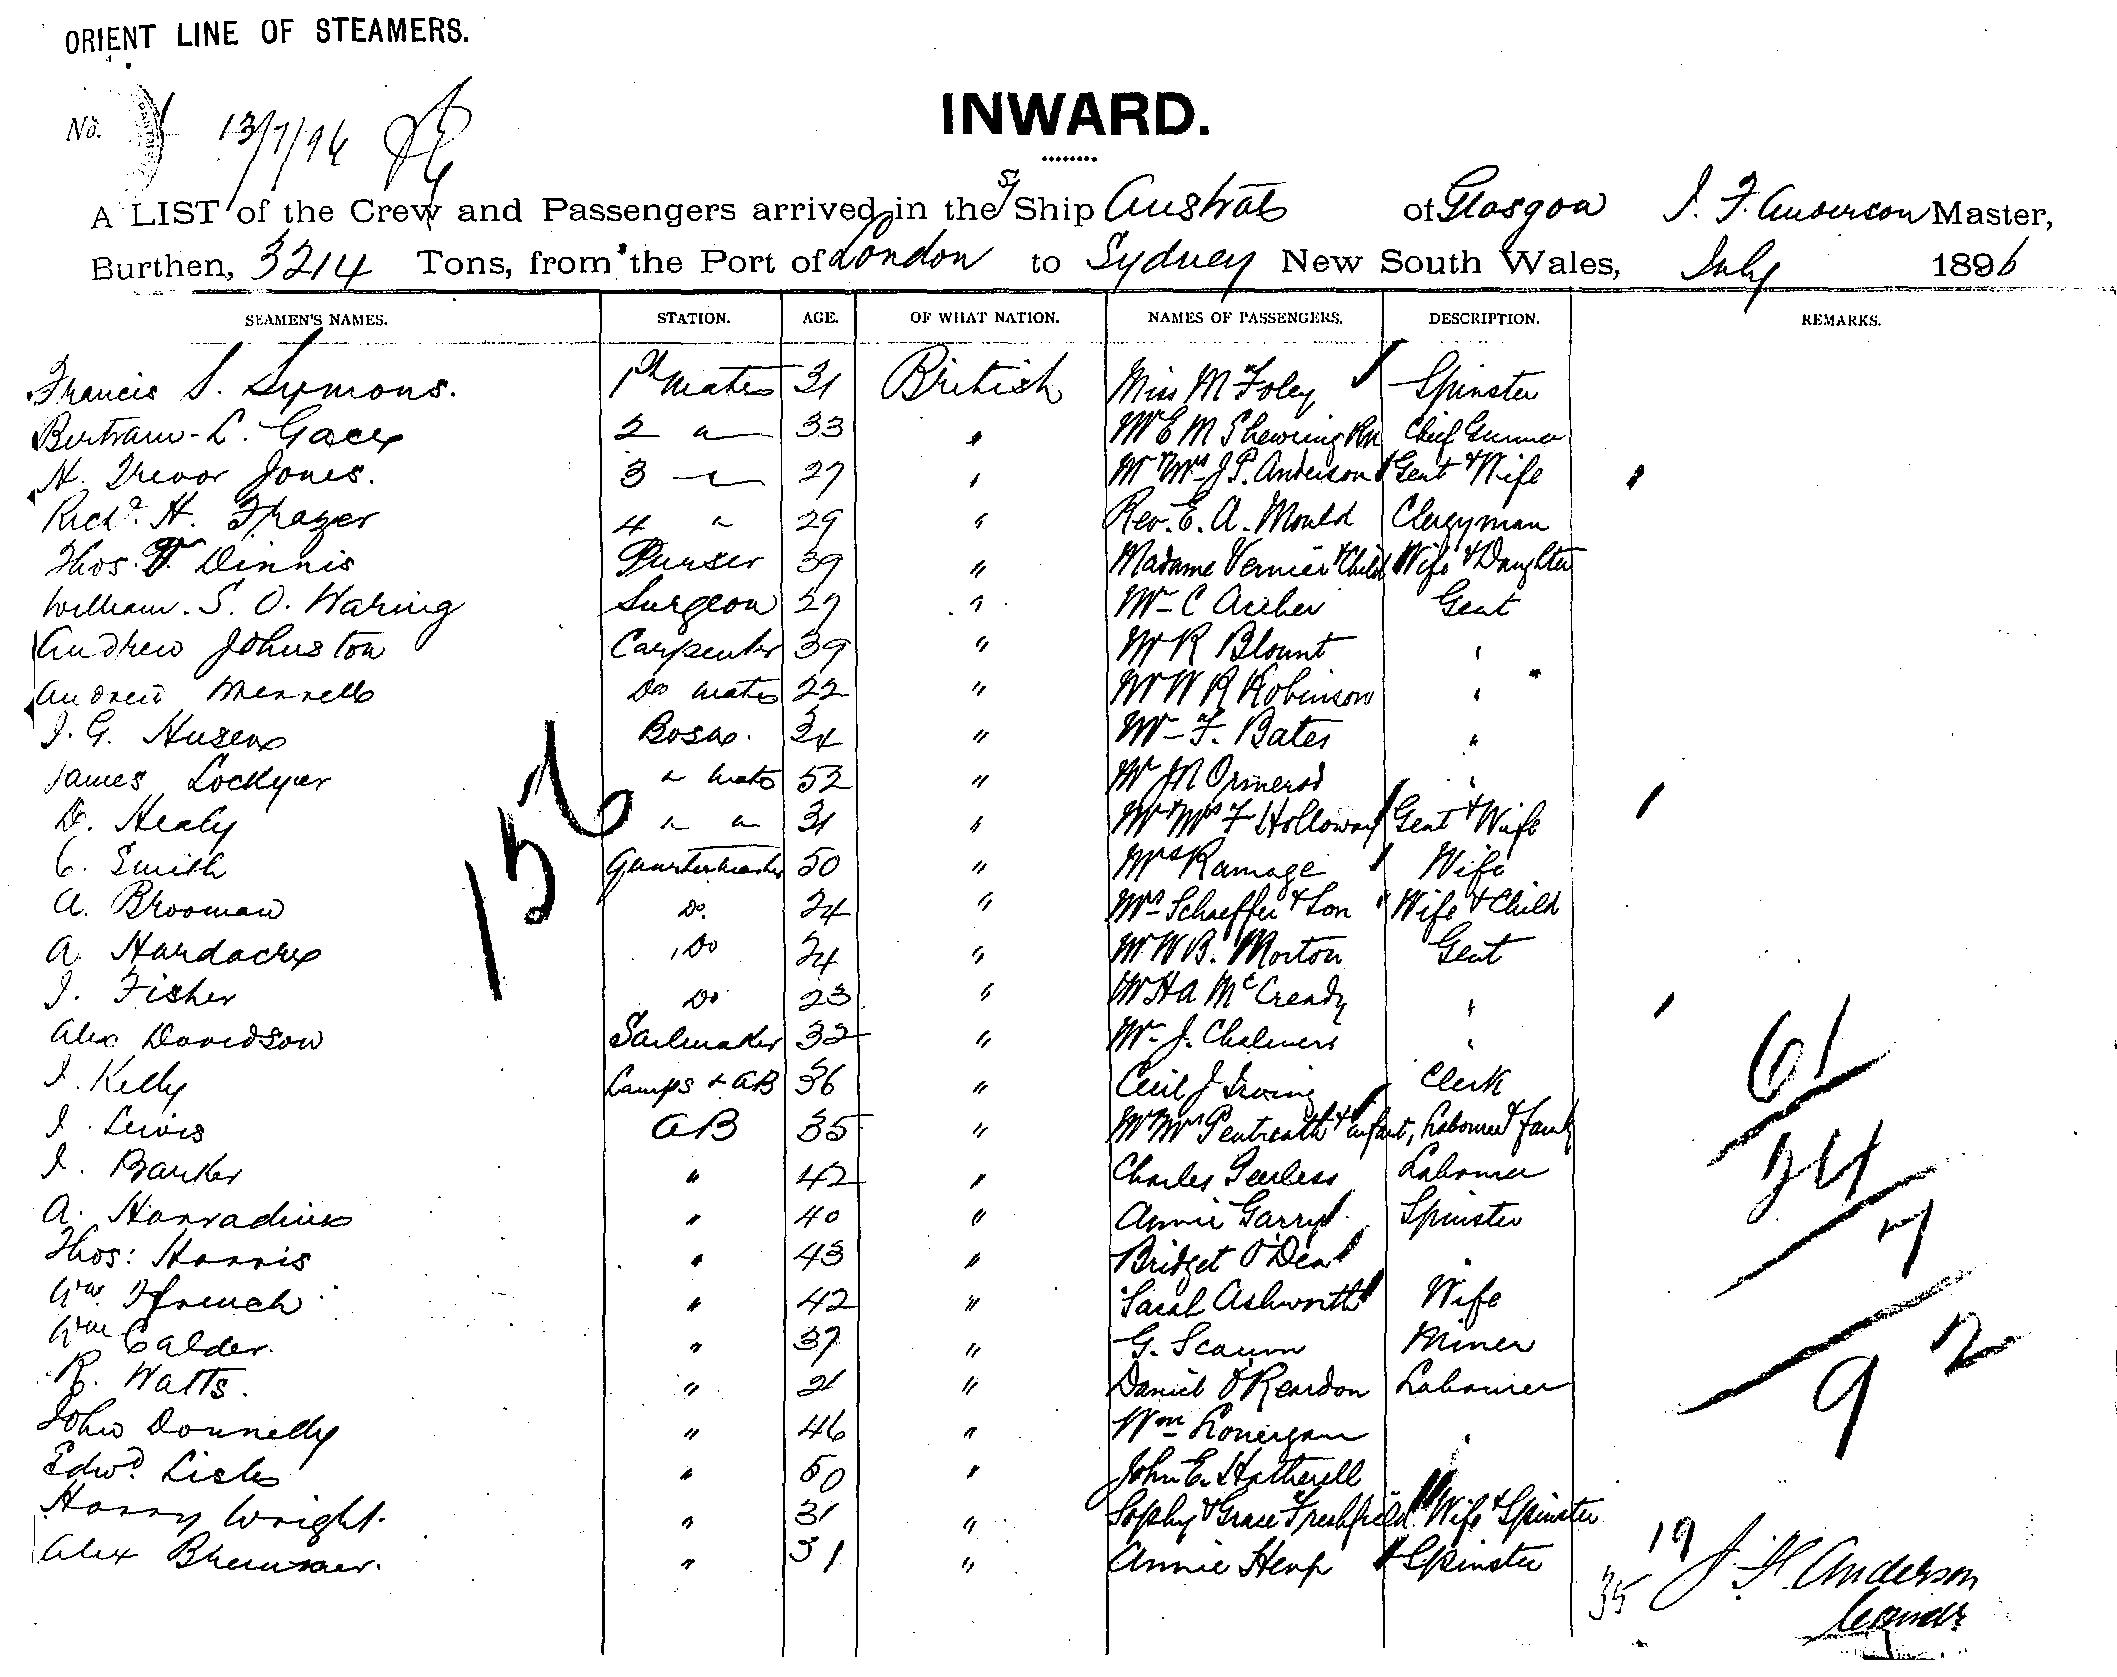 ORIENT LINE OF STEAMERS.
No. 13/7/96
INWARD.
A LIST of the Crew and Passengers arrived in the S/ Ship Austral of Glasgow J. F. Anderson Master,
Burthen, 3214 Tons, from the Port of London to Sydney New South Wales, July 1896
SEAMEN'S NAMES. STATION. AGE. OF WHAT NATION. NAMES OF PASSENGERS. DESCRIPTION. REMARKS.
Francis S. Symons. 1st mate 31 British Miss M Foley Spinster
Bertram L. Gace 2 " 33 " Mr E M Shewring RN Chief Gunner
H. Trevor Jones. 3 " 27 " Mr & Mrs J P. Anderson Gent & Wife
Richd. H. Frazer 4 " 29 " Rev. E. A. Mould Clergyman
Thos. Dinnis Purser 39 " Madame Vernier & Child Wife & Daughter
William. S. O. Waring Surgeon 27 " Mr C Archer Gent
Andrew Johnston Carpenter 39 " Mr R Blount "
Andrew Do mate 22 " Mr W R Robinson "
J. G. Bosn. 34 " Mr F. Bates "
James Lockyer " mate 52 " Mr Ormerod "
D. Healy " " 31 " Mr & Mrs F Holloway Gent & Wife
C. Smith Quartermaster 50 " Mrs Ramage Wife
A. Brooman Do. 24 " Mrs Schaeffer & Son Wife & Child
A. Hardacre Do 24 " Mr W B. Morton Gent
J. Fisher Do 23 " Mr H A McCready "
Alex Davidson Sailmaker 32 " Mr J. Chalmers "
J. Kelly Lamps & AB 36 " Cecil J Irving Clerk
J. Lewis AB 35 " Mr Mrs Pentreath & infant, Labourer & family
J. Barker " 42 " Charles Peerless Labourer
A. " 40 " Annie Garry Spinster
Thos: Harris " 43 " Bridget O'Dea "
Wm Ffrench " 42 " Sarah Ashworth Wife
Wm Calder. " 37 " G. Miner
R. Watts. " 21 " Daniel O'Reardon Labourer
John Donnelly " 46 " Wm Lonergan "
Edwd. " 50 " John E. Hatherell "
Harry Wright. " 31 " Sophy & Grace Freshfield Wife & Spinster
Alex " 31 " Annie Spinster
156
61
24
7
92
19
35
J. F. Anderson